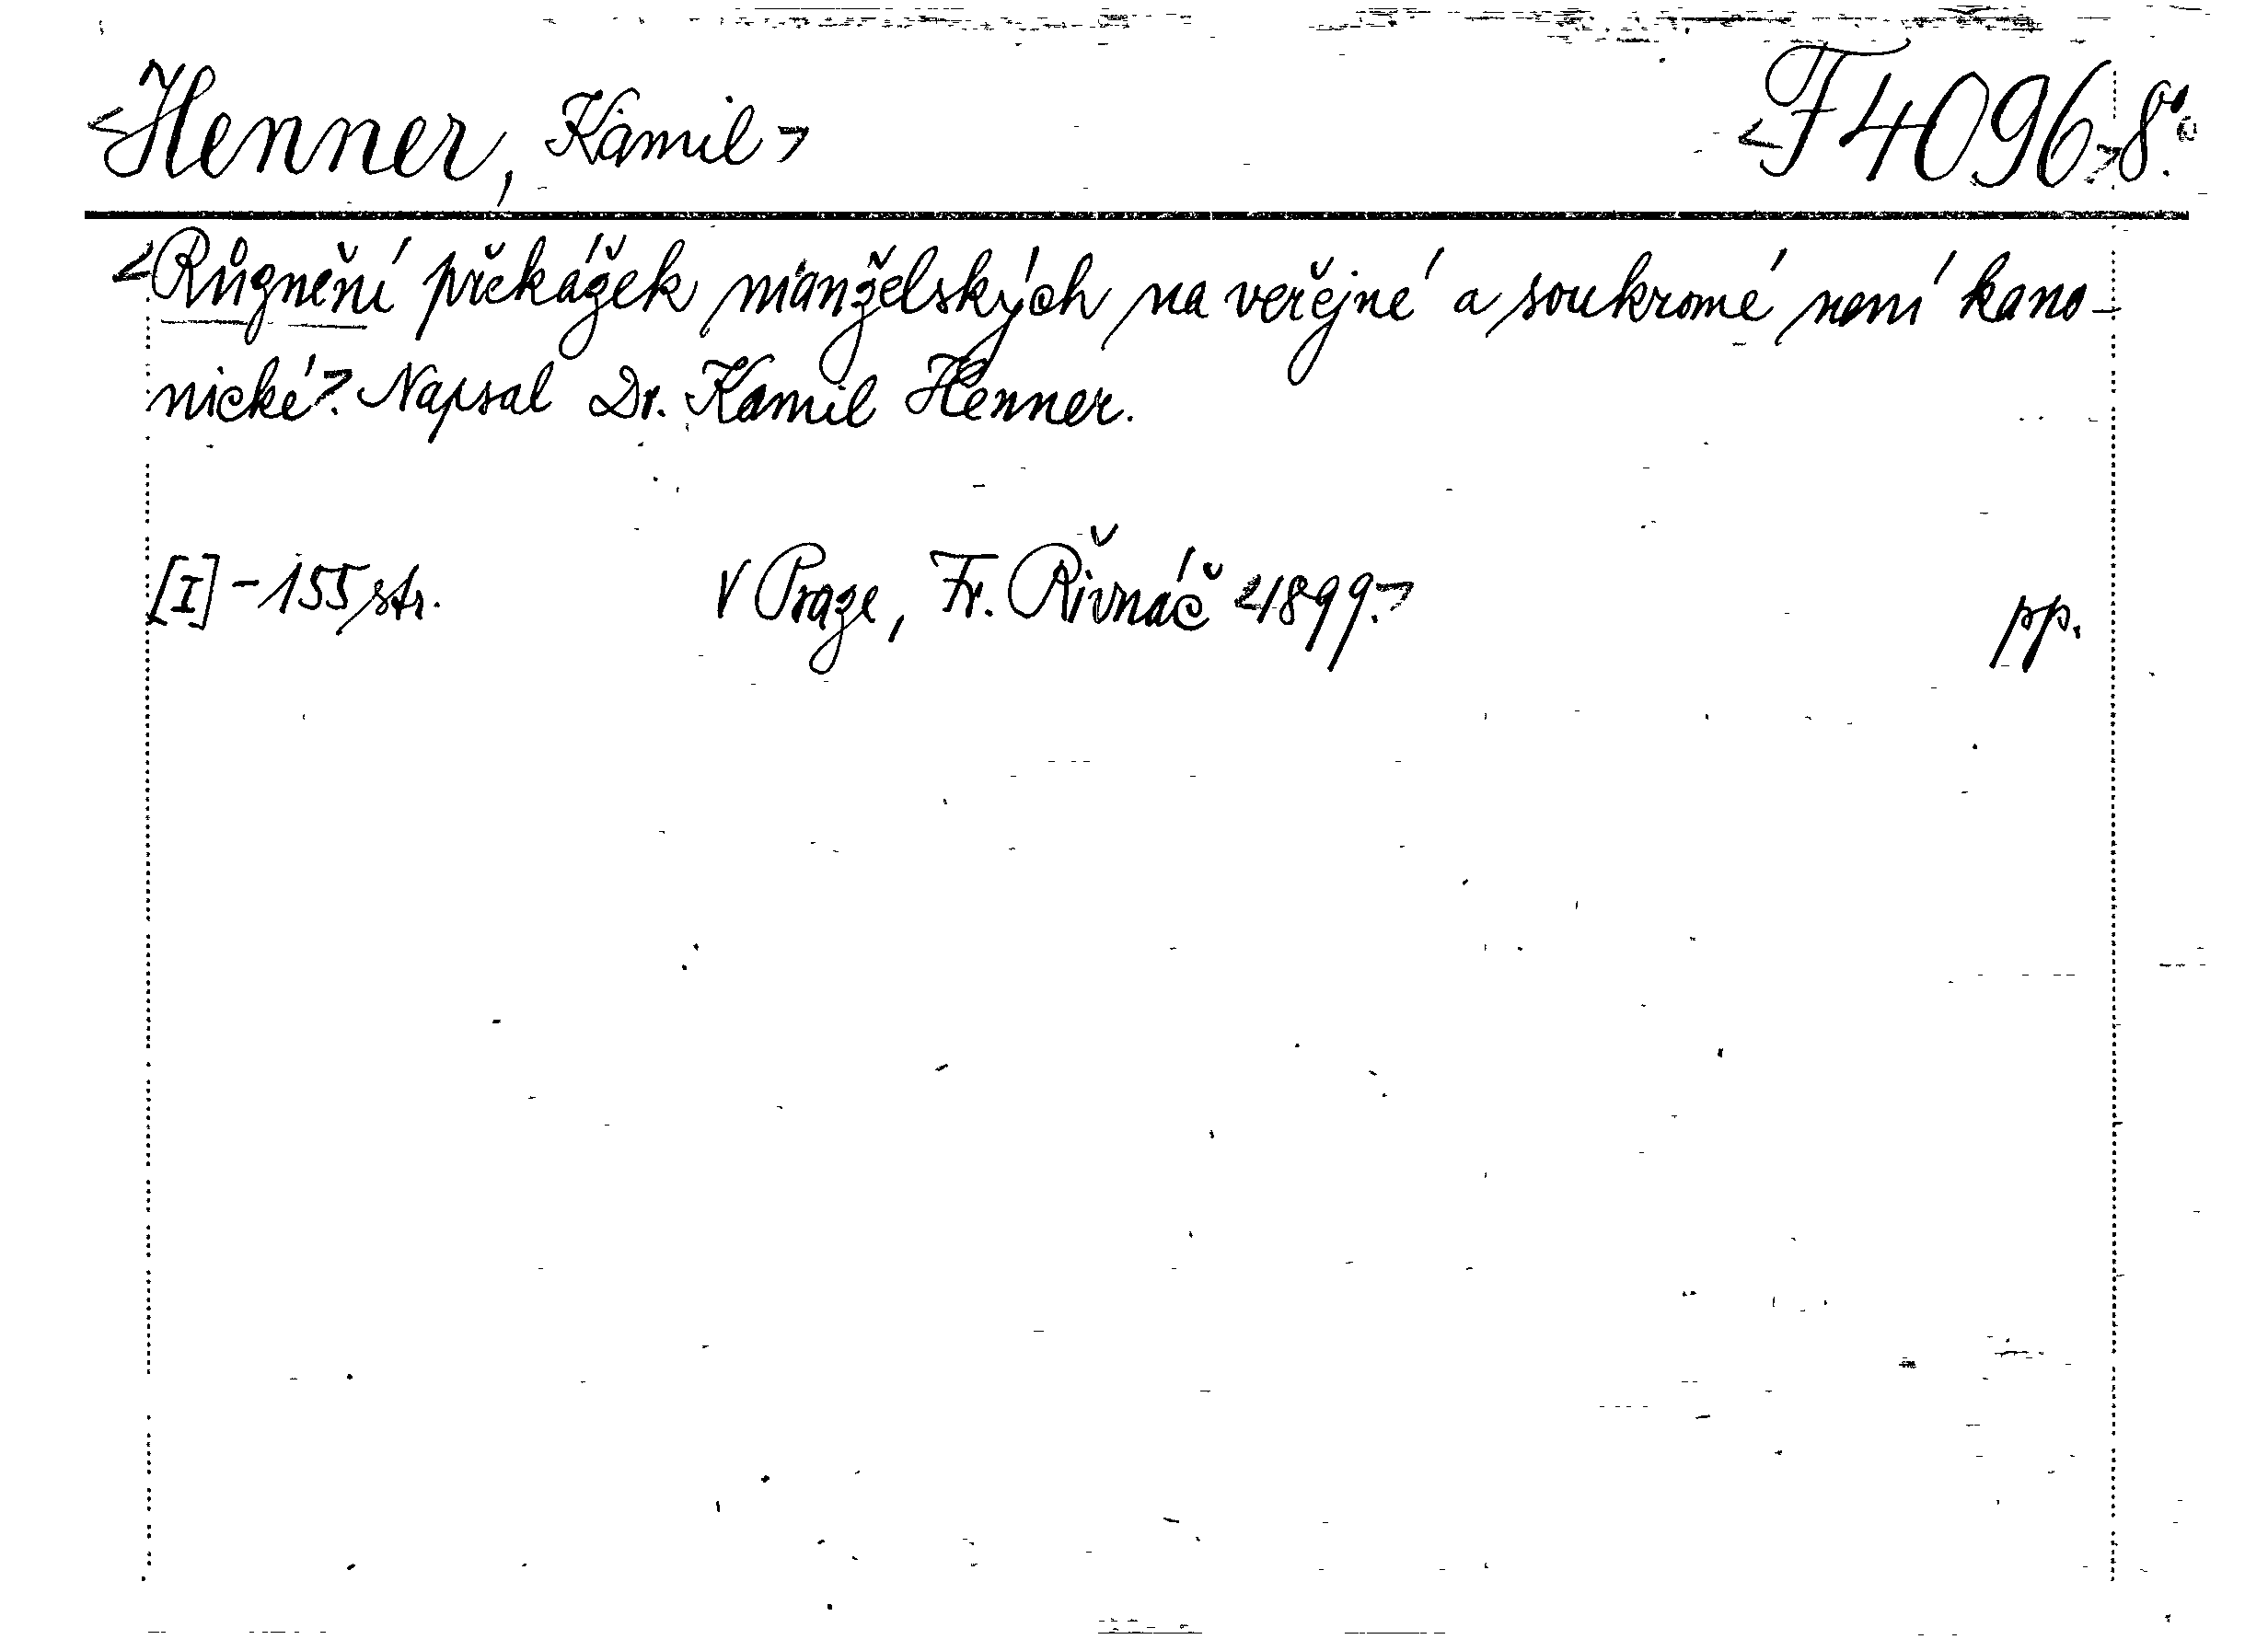 <Henner, Kamil> <F 4096>8º.
<Různění překážek manželských na veřejné a soukromé není kano-
nické>. Napsal Dr. Kamil Henner.
[I]-155 str. V Praze, Fr. Řivnáč <1899.> pp.